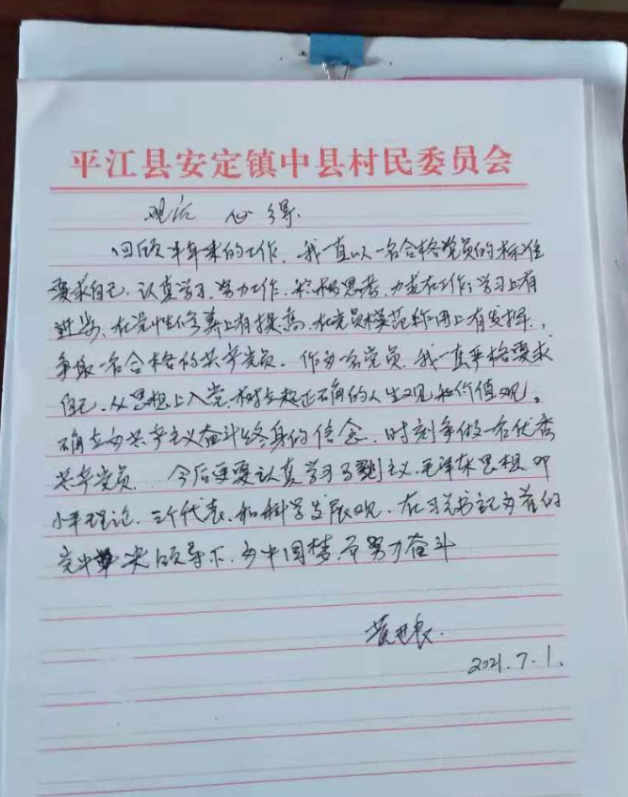 平江县安定镇中县村民委员会
观后 心得
回顾半年来的工作，我一直以一名合格党员的标准
要求自己，认真学习，努力工作，积极思考，力求在工作，学习上有
进步，在党性修养上有提高，在党员模范作用上有发挥，
争取一名合格的共产党员，作为一名党员，我一直严格要求
自己，从思想上入党，树立起正确的人生观和价值观。
确立为共产主义奋斗终身的信念，时刻争做一名优秀
共产党员，今后更要认真学习马列主义，毛泽东思想，邓
小平理论，三个代表，和科学发展观，在习总书记为首的
党中央领导下，为中国梦，而努力奋斗
2021.7.1.